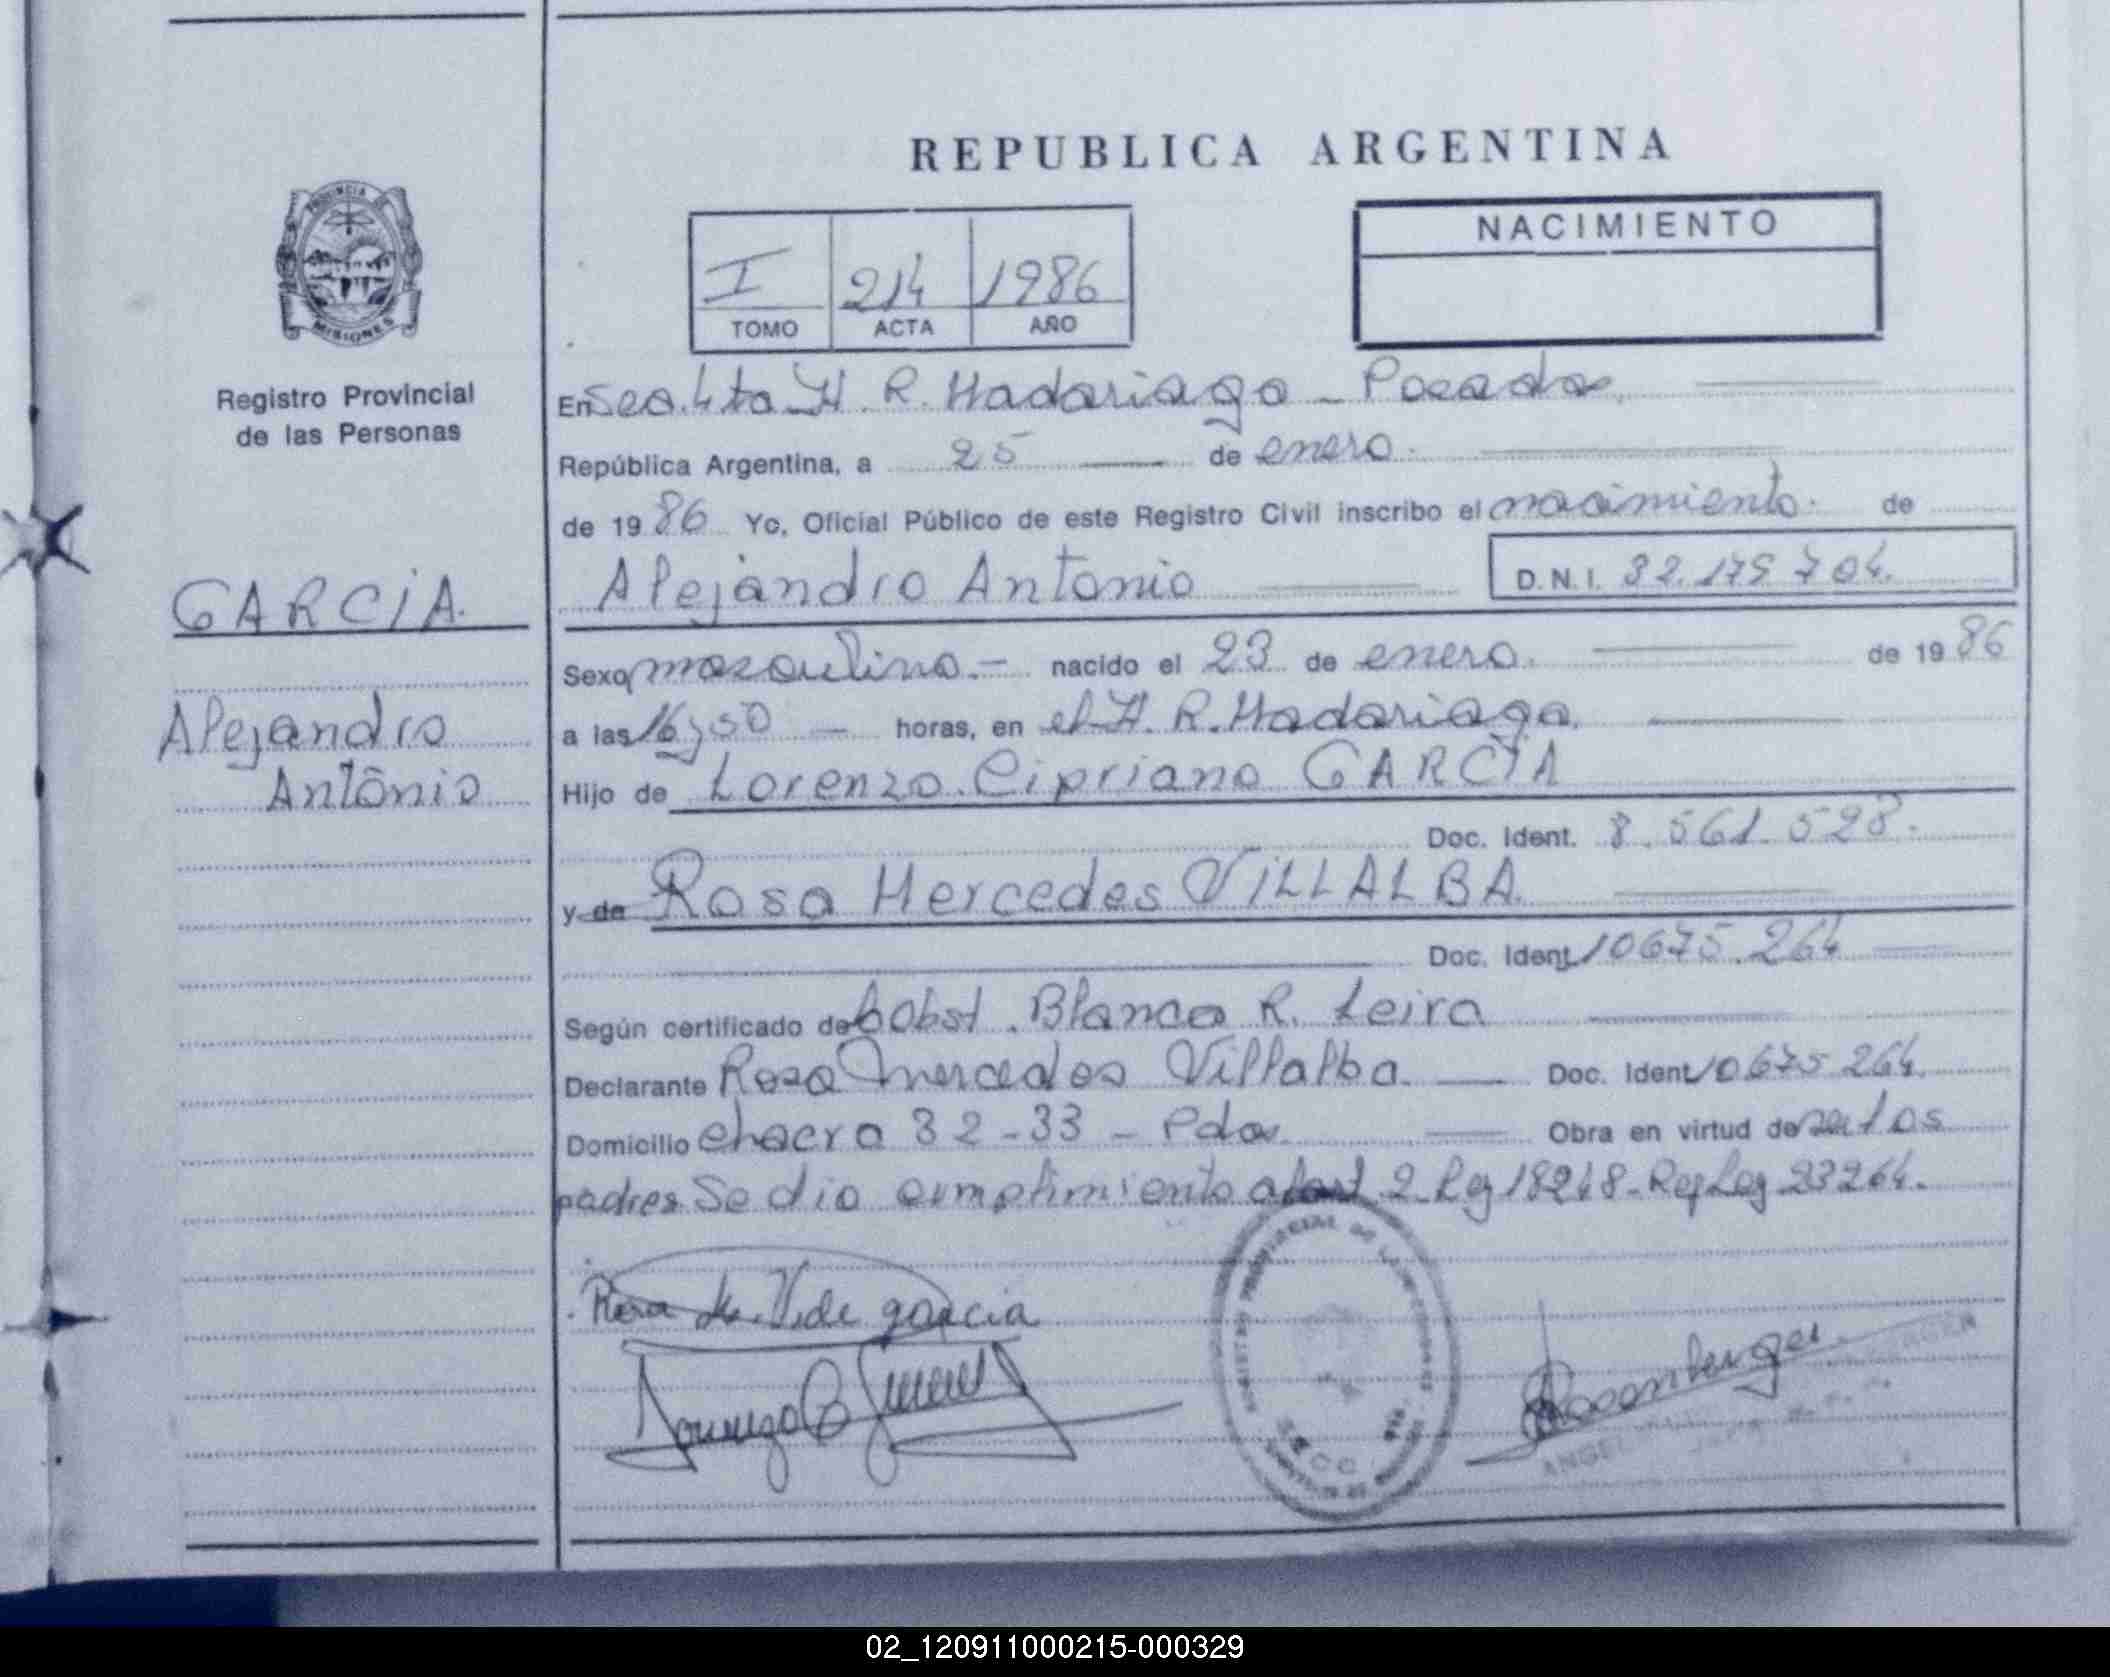 REPUBLICA ARGENTINA
PROVINCIA DE
MISIONES
Registro Provincial
de las Personas
I 214 1986
TOMO ACTA AÑO
NACIMIENTO
En Sec. 4ta H. R. Madariaga - Posadas.
República Argentina, a 25 de enero.
de 1986 Yo, Oficial Público de este Registro Civil inscribo el nacimiento. de
Alejandro Antonio D.N.I. 32.175.704.
GARCÍA.
Sexo masculino.- nacido el 23 de enero. de 1986
Alejandro
Antonio
a las 16,50 horas, en el H. R. Madariaga.
Hijo de Lorenzo Cipriano GARCÍA
Doc. Ident. 8.561.528.
y de Rosa Mercedes VILLALBA.
Doc. Ident. 10675.264
Según certificado de Obst. Blanca R. Leira
Declarante Rosa Mercedes Villalba. Doc. Ident. 10675264.
Domicilio chacra 32-33 - Pdas. Obra en virtud de ser los
padres. Se dio cumplimiento al art 2 Ley 18248- Rep Ley 23264.
Rosa M. V. de garcia
Rosenberger
ANGEL
02_120911000215-000329